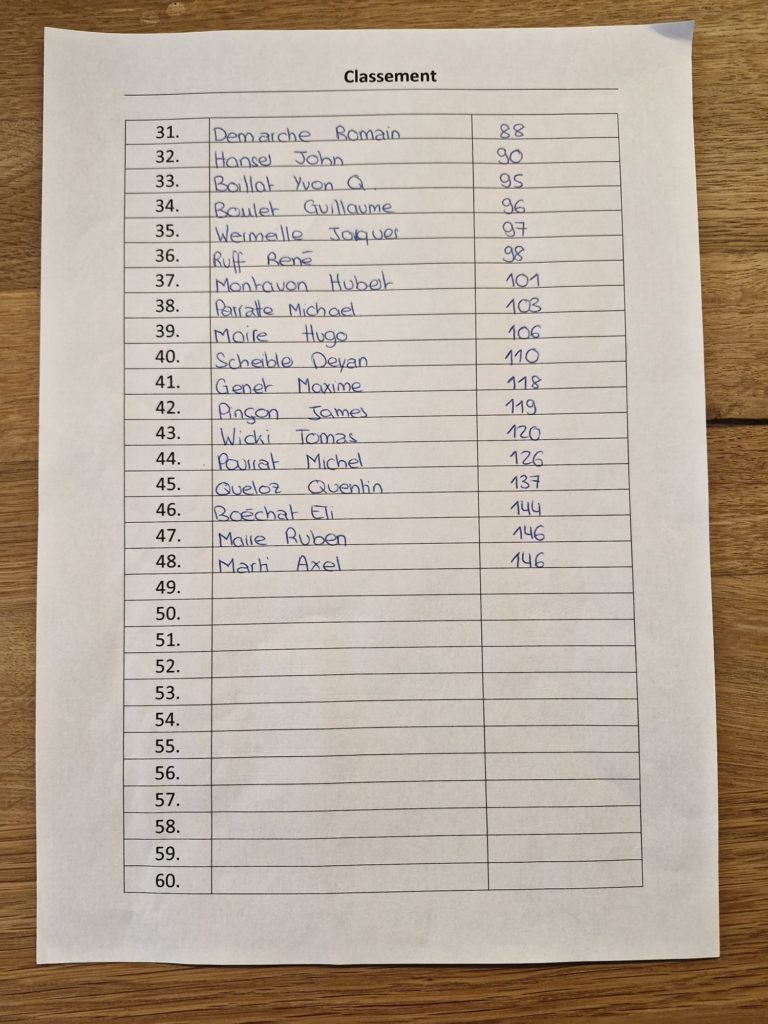 Classement
31. Demarche Romain 88
32. Hansel John 90
33. Boillat Yvon Q. 95
34. Boulet Guillaume 96
35. Wermeille Jacques 97
36. Ruff René 98
37. Montavon Hubert 101
38. Parratte Michael 103
39. Maire Hugo 106
40. Scheible Deyan 110
41. Genet Maxime 118
42. Pinçon James 119
43. Wicki Tomas 120
44. Pourrat Michel 126
45. Queloz Quentin 137
46. Boéchat Eli 144
47. Maire Ruben 146
48. Marti Axel 146
49.
50.
51.
52.
53.
54.
55.
56.
57.
58.
59.
60.